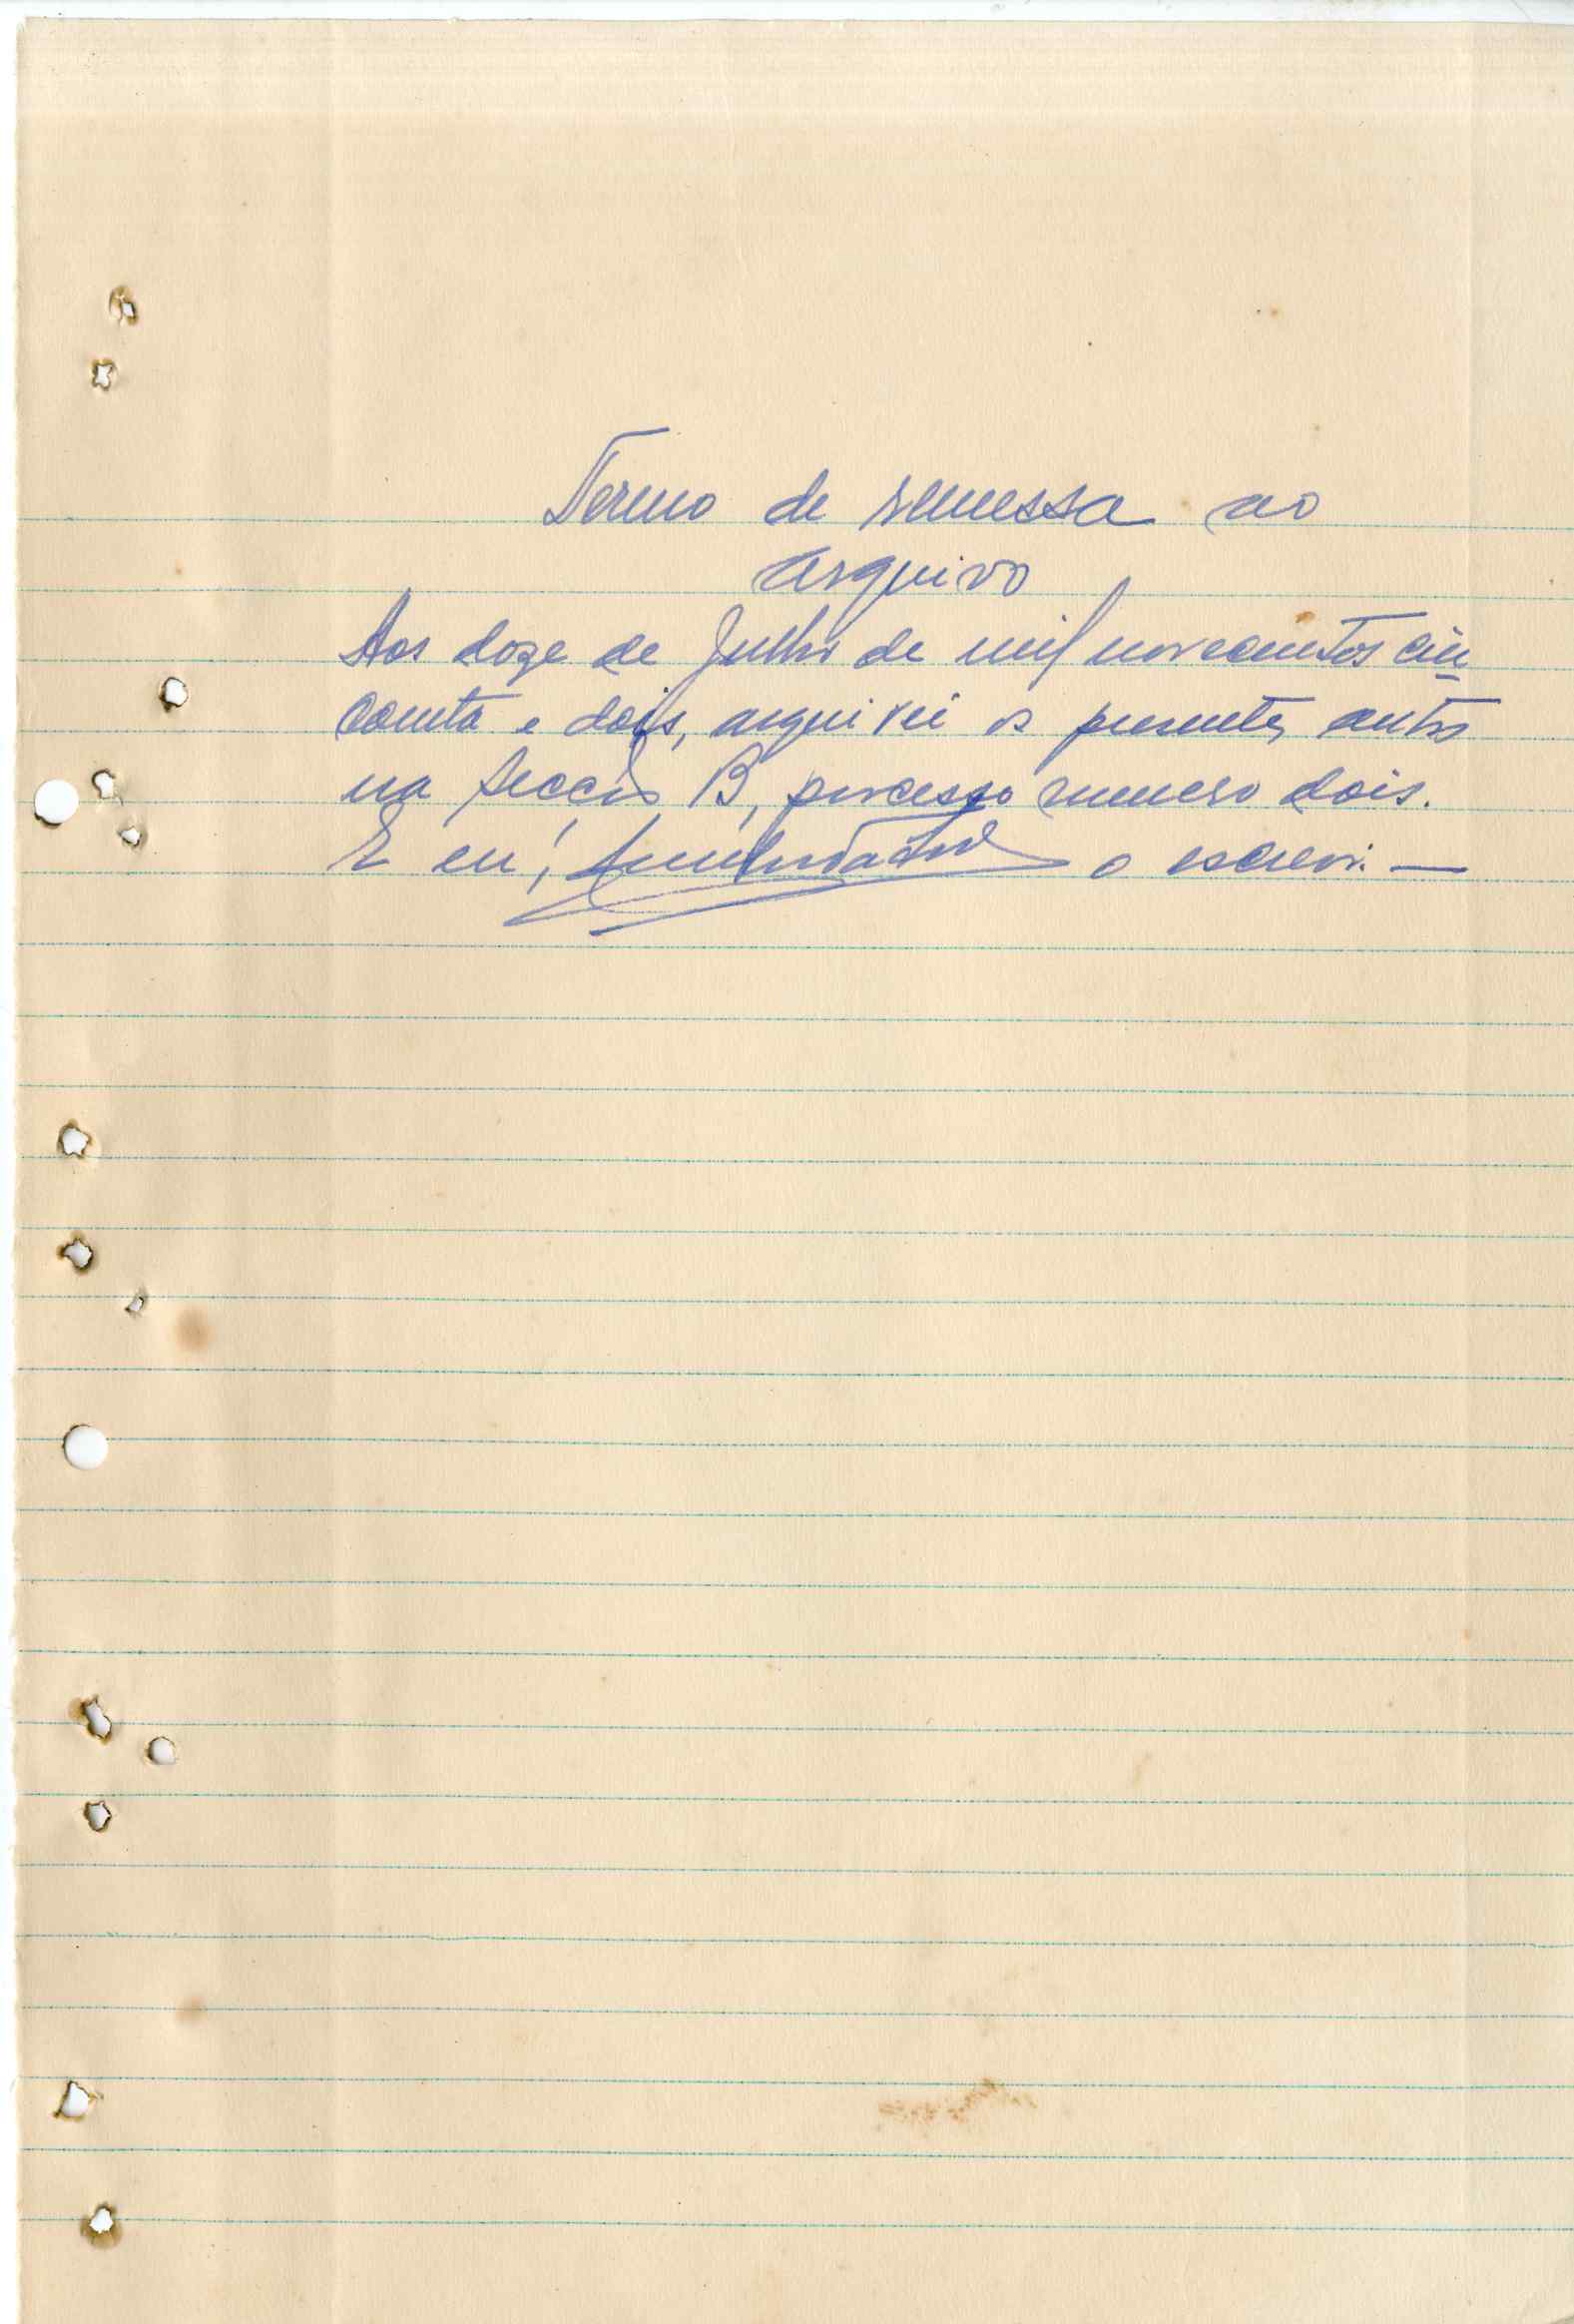 Termo de remessa ao
arquivo
Aos doze de Julho de mil novecentos cin
coenta e dois, arquivei os presentes autos
na Secção B, processo numero dois.
E eu, o escrevi. —